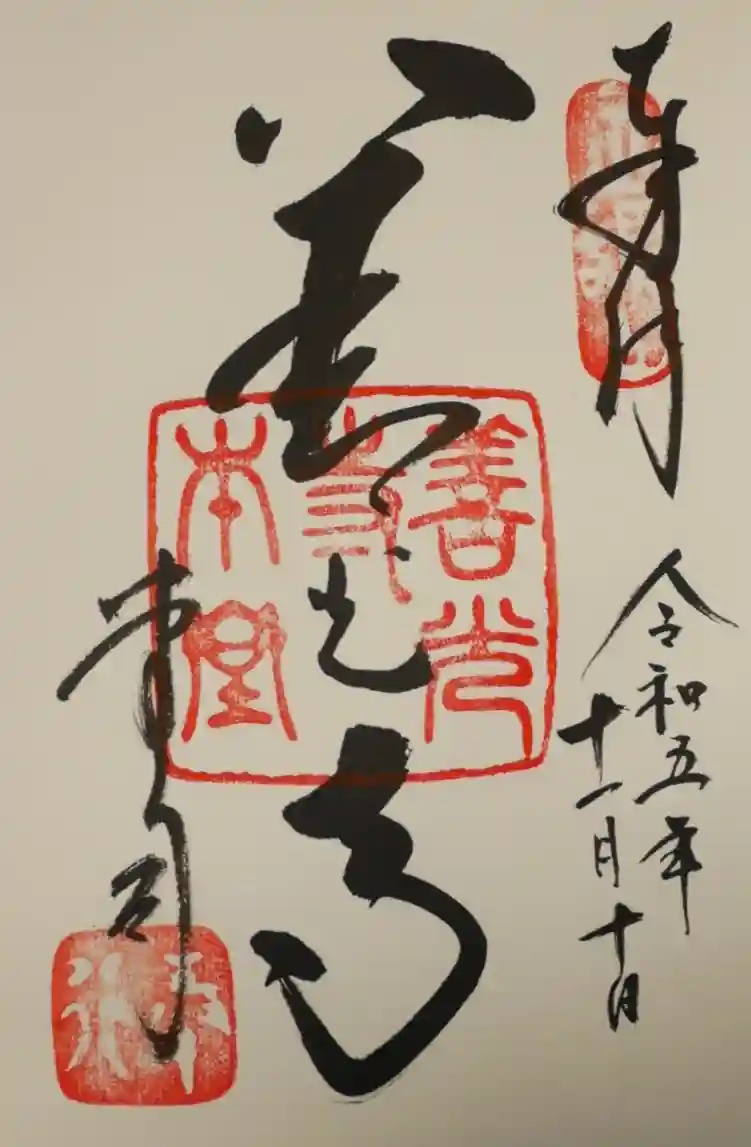 奉拝
令和五年
十一月十日
善光寺
善光
寺
本堂
堂司